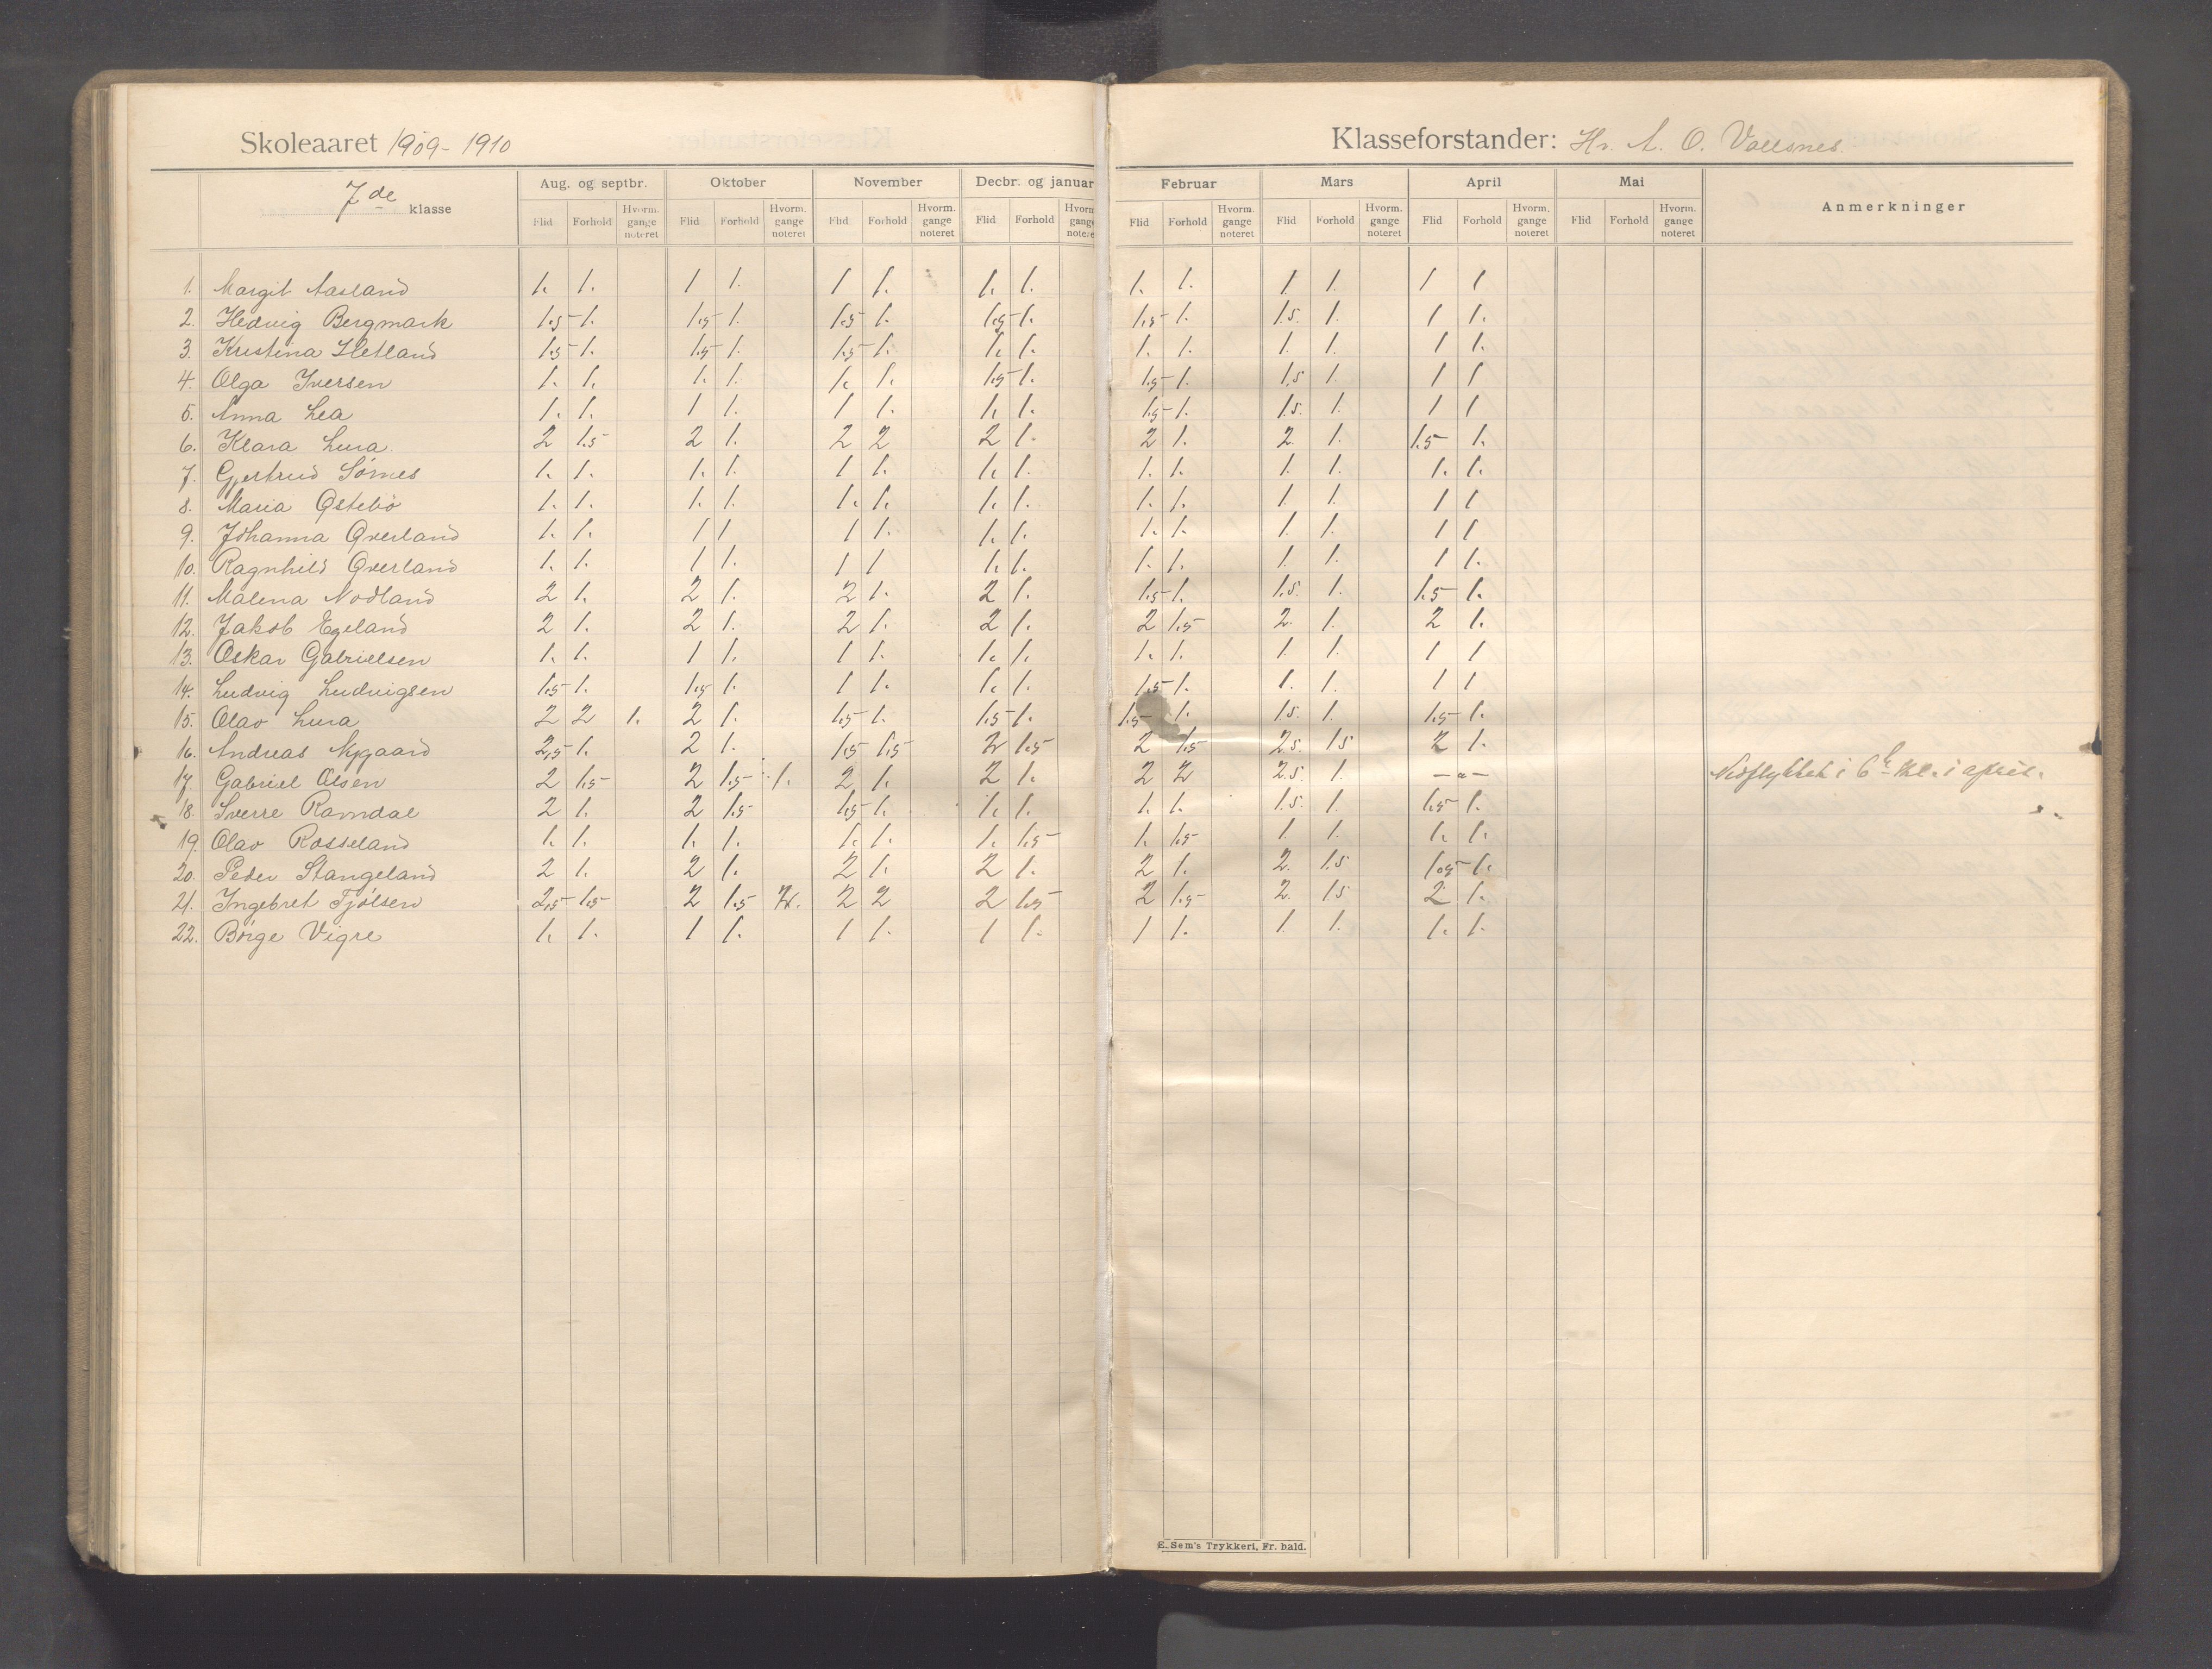 Skoleaaret 1909-1910
Klasseforstander: Hr. A. O. Vallsnes.
7de klasse
Aug. og septbr. Oktober November Decbr. og januar Februar Mars April Mai Anmerkninger
Flid Forhold Hvorm. gange noteret Flid Forhold Hvorm. gange noteret Flid Forhold Hvorm. gange noteret Flid Forhold Hvorm. gange noteret Flid Forhold Hvorm. gange noteret Flid Forhold Hvorm. gange noteret Flid Forhold Hvorm. gange noteret Flid Forhold Hvorm. gange noteret
1. Margit Aasland 1. 1. 1 1. 1 1. 1. 1. 1. 1. 1. 1. 1 1
2. Hedvig Bergmark 1.5 1. 1.5 1. 1.5 1. 1.5 1. 1.5 1. 1.5. 1. 1 1.
3. Kristina Hetland 1.5 1. 1.5 1. 1.5 1. 1. 1. 1. 1. 1. 1. 1 1.
4. Olga Iversen 1. 1. 1. 1. 1. 1. 1.5 1. 1.5 1. 1.5 1. 1 1
5. Anna Lea 1. 1. 1 1. 1 1. 1. 1. 1.5 1. 1.5. 1. 1 1
6. Klara Lura 2 1.5 2 1. 2 2 2 1. 2 1. 2. 1. 1.5 1.
7. Gjertrud Sømes 1. 1. 1. 1. 1 1. 1. 1. 1. 1. 1. 1. 1. 1.
8. Maria Østebø 1. 1. 1. 1. 1. 1. 1. 1. 1. 1. 1. 1. 1 1
9. Johanna Qverland 1. 1. 1 1 1 1. 1. 1. 1. 1. 1. 1. 1 1
10. Ragnhild Qverland 1. 1. 1 1. 1 1 1. 1. 1. 1. 1. 1. 1 1.
11. Malena Nodland 2 1. 2 1. 2 1. 2 1. 1.5 1. 1.5. 1. 1.5 1.
12. Jakob Egeland 2 1. 2 1. 2 1. 2 1. 2 1.5 2. 1. 2 1.
13. Oskar Gabrielsen 1. 1. 1 1. 1 1. 1. 1. 1. 1. 1. 1. 1 1
14. Ludvig Ludvigsen 1.5 1. 1.5 1. 1 1. 1. 1. 1.5 1. 1. 1. 1 1
15. Olav Lura 2 2 1. 2 1. 1.5 1. 1.5 1. 1.5 1. 1.5. 1. 1.5 1.
16. Andreas Nygaard 2,5 1. 2 1. 1.5 1.5 2 1.5 2 1.5 2.5. 1.5 2 1.
17. Gabriel Olsen 2 1.5 2 1.5 1. 2 1. 2 1. 2 2 2.5. 1. —"— Nedflyttet i 6te kl. i april.
18. Sverre Ramdal 2 1. 2 1.5 1.5 1. 1. 1. 1. 1. 1.5. 1. 1.5 1.
19. Olav Rosseland 1. 1. 1. 1. 1. 1. 1. 1.5 1. 1.5 1. 1. 1. 1.
20. Peder Stangeland 2 1. 2 1. 2 1. 2 1. 2 1. 2. 1.5 1.5 1.
21. Ingebret Tjølsen 2,5 1.5 2 1.5 2. 2 2 2 1.5 2 1.5 2. 1.5 2 1.
22. Børge Vigre 1. 1. 1 1. 1 1. 1 1. 1 1. 1. 1. 1. 1.
E. Sem's Trykkeri, Fr. hald.